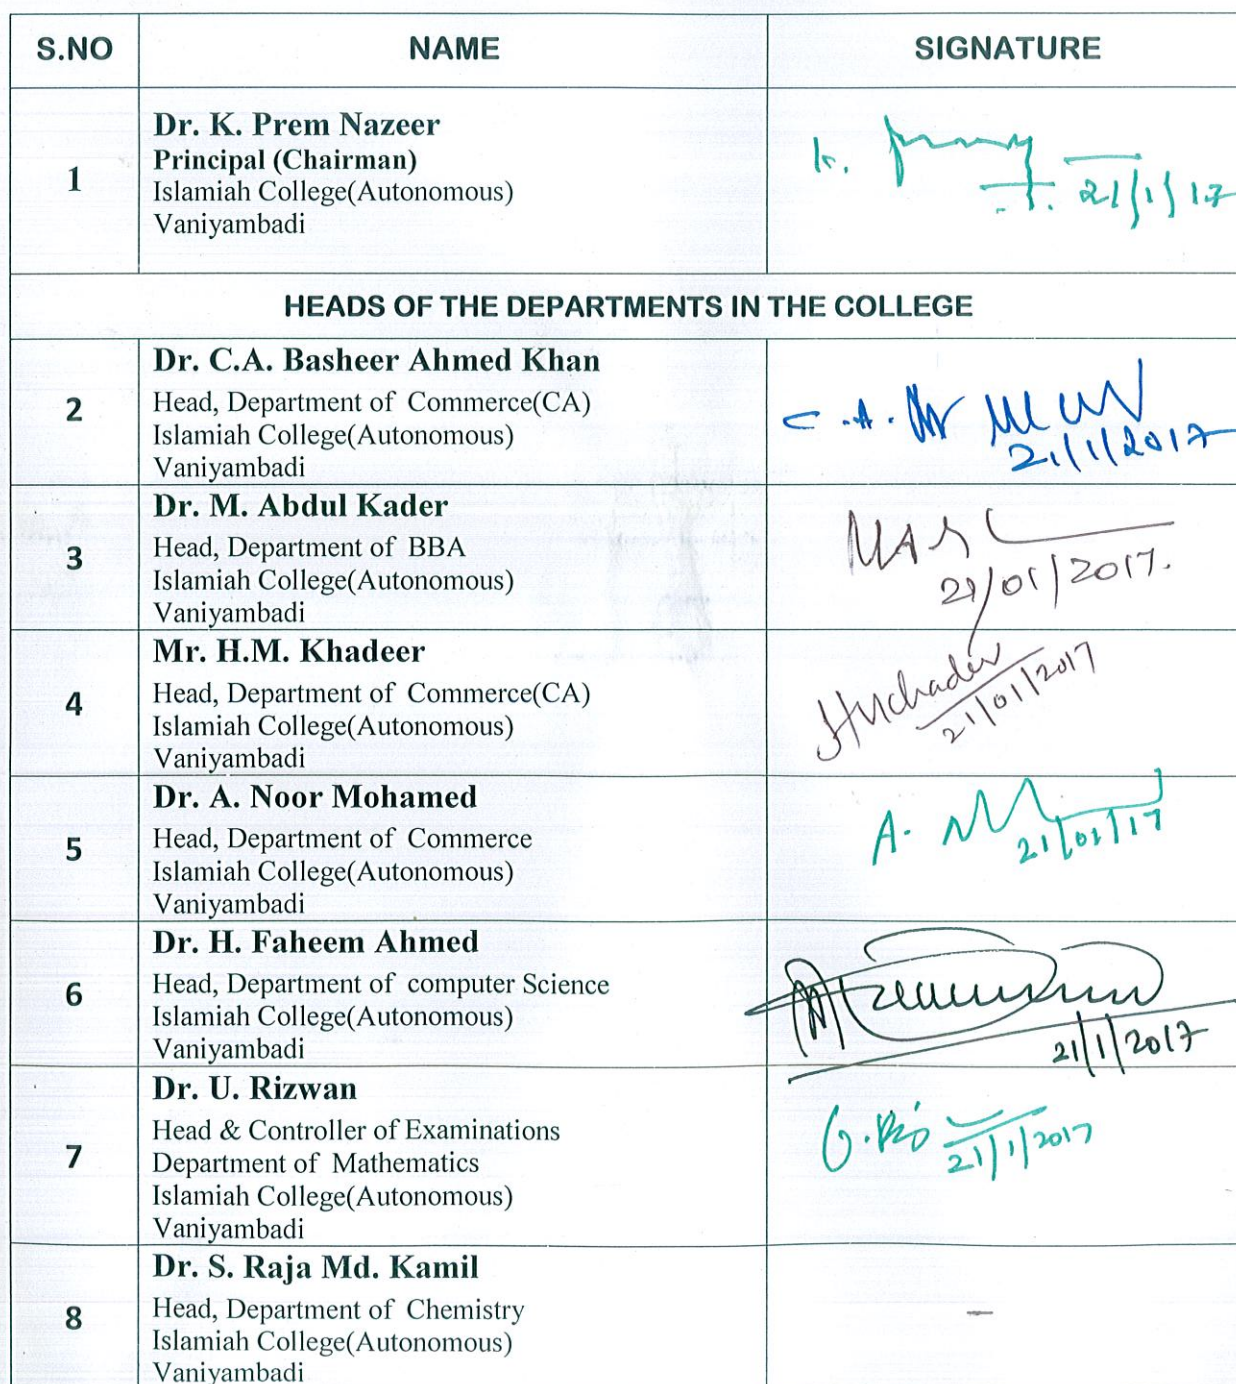 S.NO NAME SIGNATURE
1
Dr. K. Prem Nazeer
Principal (Chairman)
Islamiah College(Autonomous)
Vaniyambadi
K.
21/1/17
HEADS OF THE DEPARTMENTS IN THE COLLEGE
2
Dr. C.A. Basheer Ahmed Khan
Head, Department of Commerce(CA)
Islamiah College(Autonomous)
Vaniyambadi
C.A.
21/1/2017
3
Dr. M. Abdul Kader
Head, Department of BBA
Islamiah College(Autonomous)
Vaniyambadi
21/01/2017.
4
Mr. H.M. Khadeer
Head, Department of Commerce(CA)
Islamiah College(Autonomous)
Vaniyambadi
21/01/2017
5
Dr. A. Noor Mohamed
Head, Department of Commerce
Islamiah College(Autonomous)
Vaniyambadi
A.
21/01/17
6
Dr. H. Faheem Ahmed
Head, Department of computer Science
Islamiah College(Autonomous)
Vaniyambadi
21/1/2017
7
Dr. U. Rizwan
Head & Controller of Examinations
Department of Mathematics
Islamiah College(Autonomous)
Vaniyambadi
21/1/2017
8
Dr. S. Raja Md. Kamil
Head, Department of Chemistry
Islamiah College(Autonomous)
Vaniyambadi
—